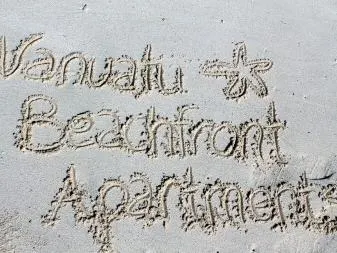 Vanuatu
Beachfront
Apartments